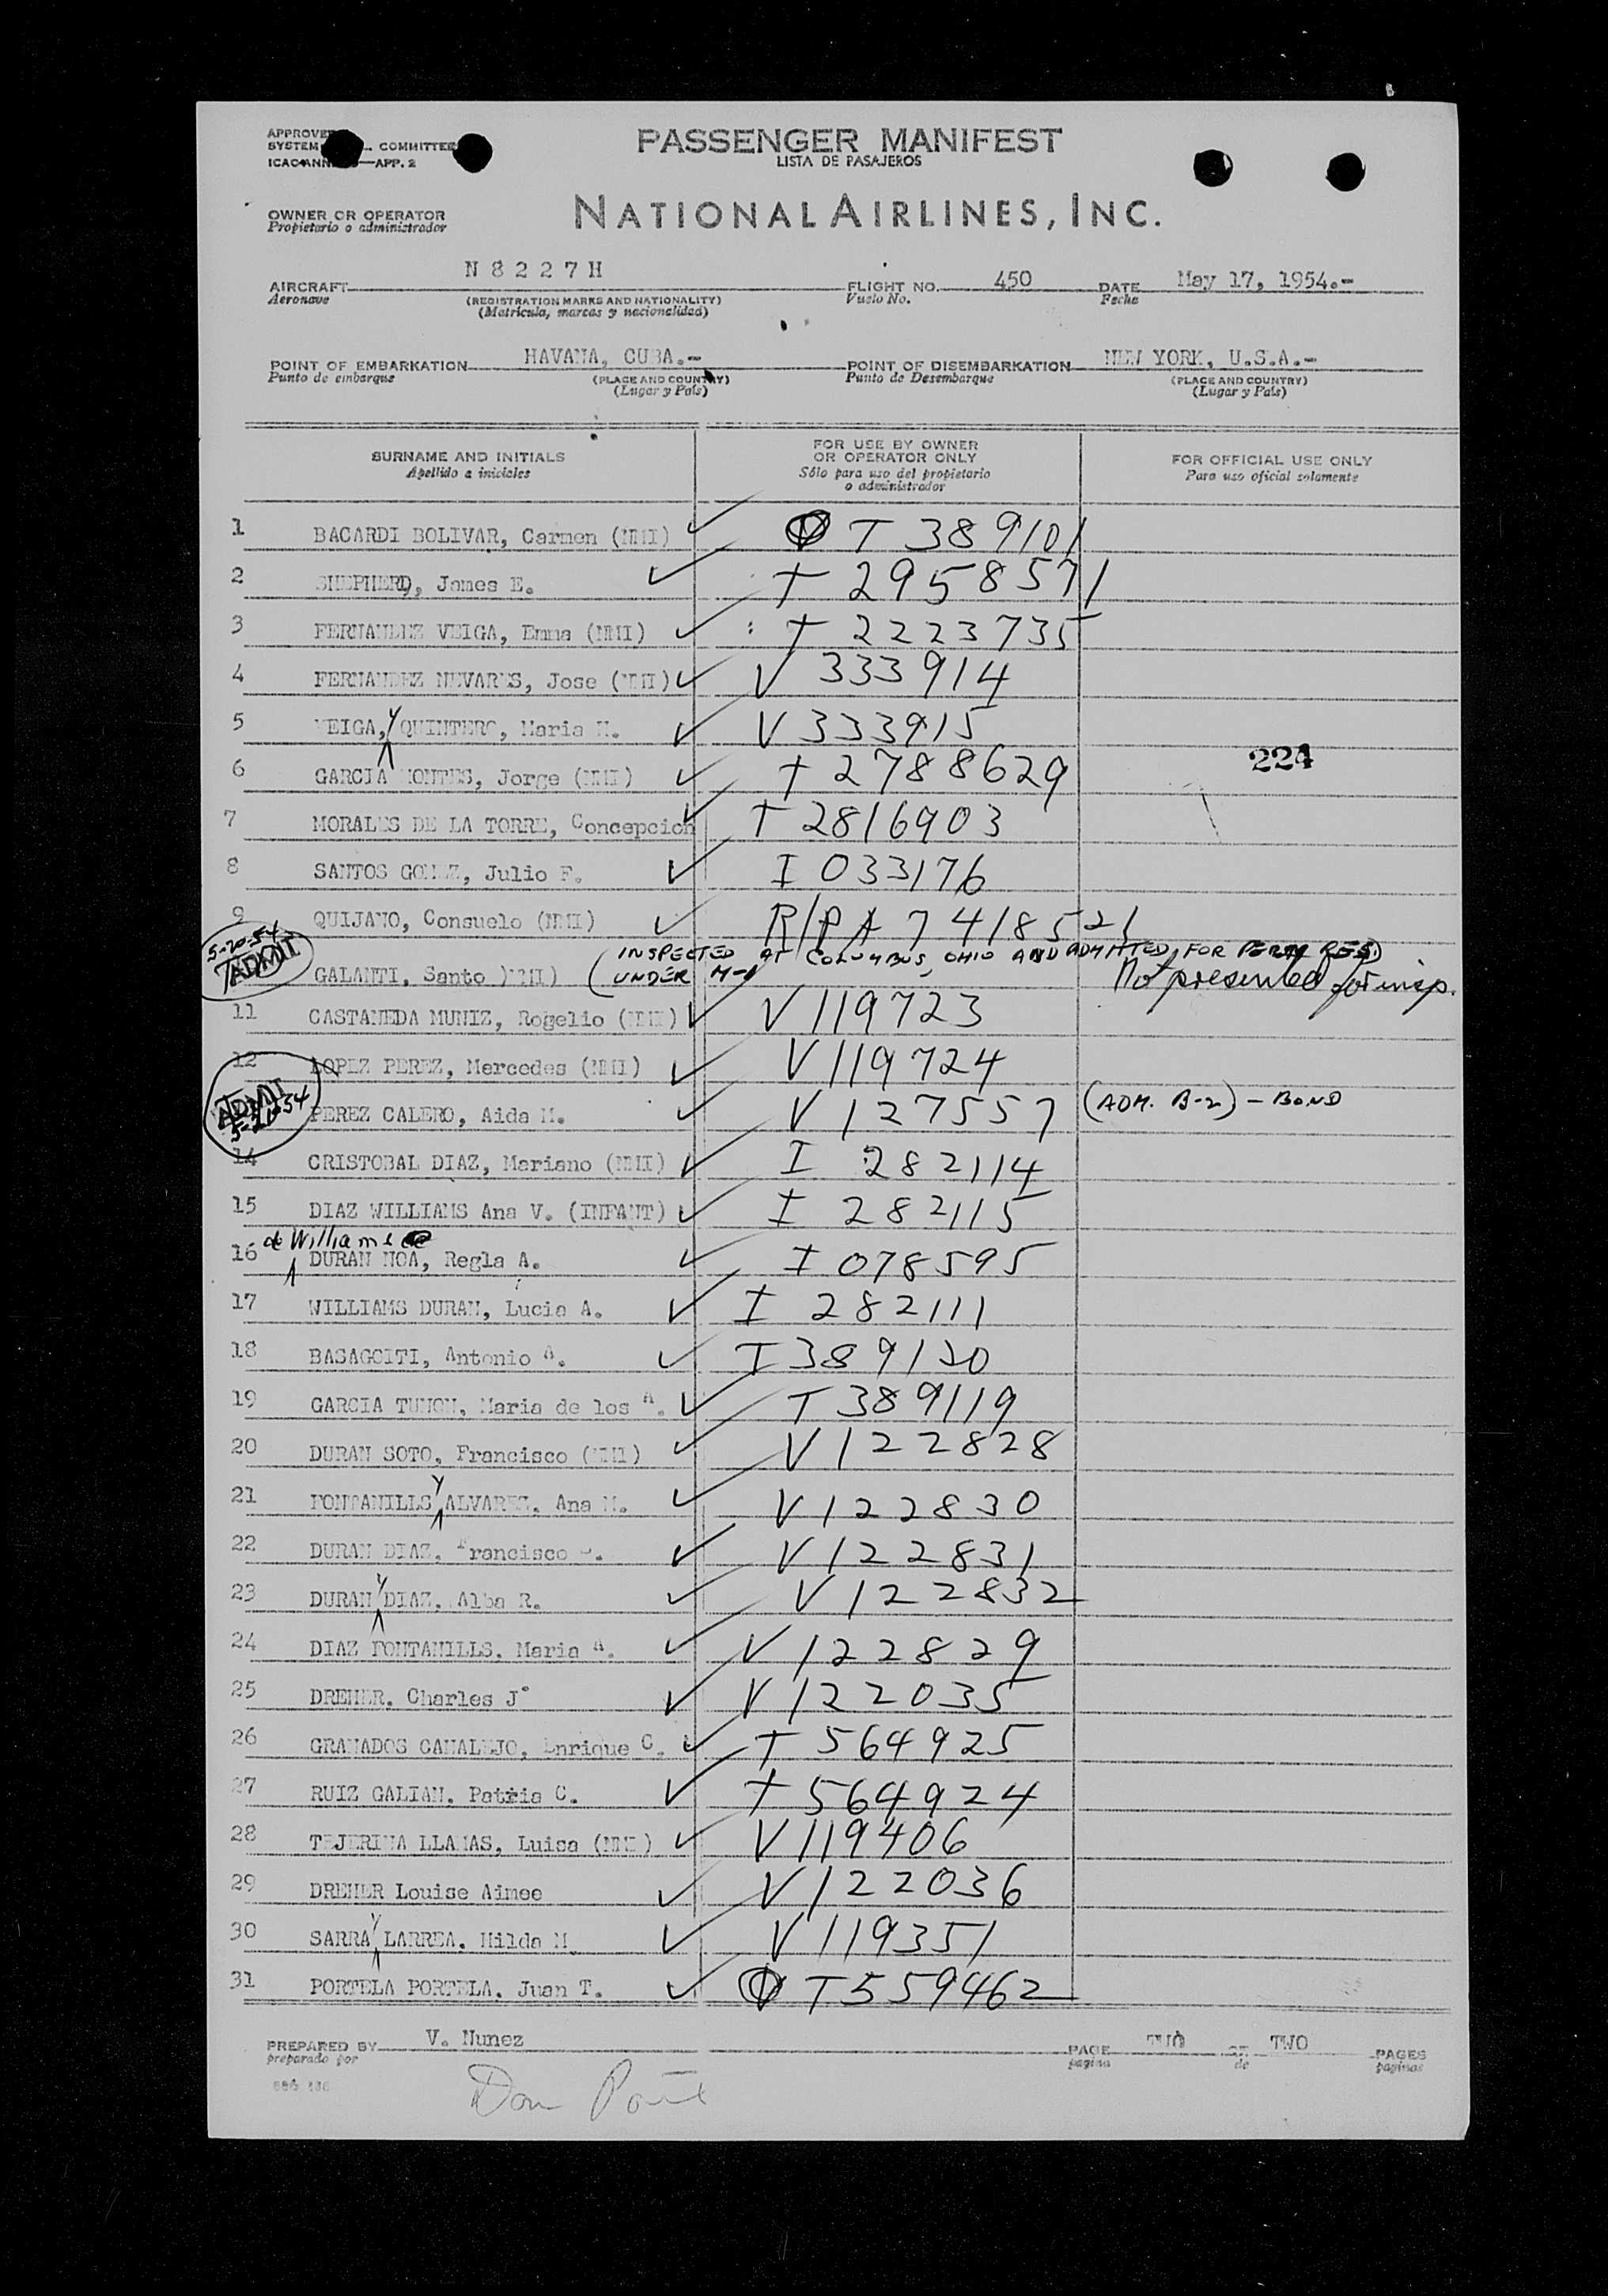 APPROVED
SYSTEM COMMITTEE
ICAO ANNEX APP. 2
PASSENGER MANIFEST
LISTA DE PASAJEROS
OWNER OR OPERATOR
Propietario o administrador
NATIONAL AIRLINES, INC.
AIRCRAFT N 8 2 2 7 H FLIGHT NO. 450 DATE May 17, 1954.-
Aeronave (REGISTRATION MARKS AND NATIONALITY) Vuelo No. Fecha
(Matricula, marcas y nacionalidad)
POINT OF EMBARKATION HAVANA, CUBA.- POINT OF DISEMBARKATION NEW YORK, U.S.A.-
Punto de embarque (PLACE AND COUNTRY) Punto de Desembarque (PLACE AND COUNTRY)
(Lugar y País) (Lugar y País)
SURNAME AND INITIALS
Apellido a iniciales
FOR USE BY OWNER
OR OPERATOR ONLY
Sólo para uso del propietario
o administrador
FOR OFFICIAL USE ONLY
Para uso oficial solamente
1 BACARDI BOLIVAR, Carmen (NMI) T 389101
2 SHEPHERD, James E. T 2958571
3 FERNANDEZ VEIGA, Emma (NMI) T 2223735
4 FERNANDEZ NEVARES, Jose (NMI) V 333914
5 VEIGA, y QUINTERO, Maria M. V 333915
6 GARCIA MONTES, Jorge (NMI) T 2788629 224
7 MORALES DE LA TORRE, Concepcion T 2816903
8 SANTOS GOMEZ, Julio F. I 033176
9 QUIJANO, Consuelo (NMI) R/P A 7418521
5-20-54 ADMIT (INSPECTED AT COLUMBUS, OHIO AND ADMITTED FOR PERM RES.)
GALANTI, Santo )NMI) UNDER M-1 Not presented for insp.
11 CASTANEDA MUNIZ, Rogelio (NMI) V 119723
12 LOPEZ PEREZ, Mercedes (NMI) V 119724
ADMIT PEREZ CALERO, Aida M. V 127557 (ADM. B-2) - BOND
14 CRISTOBAL DIAZ, Mariano (NMI) I 282114
15 DIAZ WILLIAMS Ana V. (INFANT) I 282115
de Williams
16 DURAN NOA, Regla A. I 078595
17 WILLIAMS DURAN, Lucia A. I 282111
18 BASAGOITI, Antonio A. T 389120
19 GARCIA TUNON, Maria de los A. T 389119
20 DURAN SOTO, Francisco (NMI) V 122828
21 FONTANILLS y ALVAREZ. Ana M. V 122830
22 DURAN DIAZ. Francisco V 122831
23 DURAN y DIAZ. Alba R. V 122832
24 DIAZ FONTANILLS. Maria A. V 122829
25 DREHER. Charles J. V 122035
26 GRANADOS CAMALEJO, Enrique C. T 564925
27 RUIZ GALIAN. Patria C. T 564924
28 TEJERINA LLAMAS, Luisa (NMI) V 119406
29 DREHER Louise Aimee V 122036
30 SARRA y LARREA. Hilda M. V 119351
31 PORTELA PORTELA. Juan T. T 559462
PREPARED BY V. Nunez PAGE TWO OF TWO PAGES
preparado por pagina de paginas